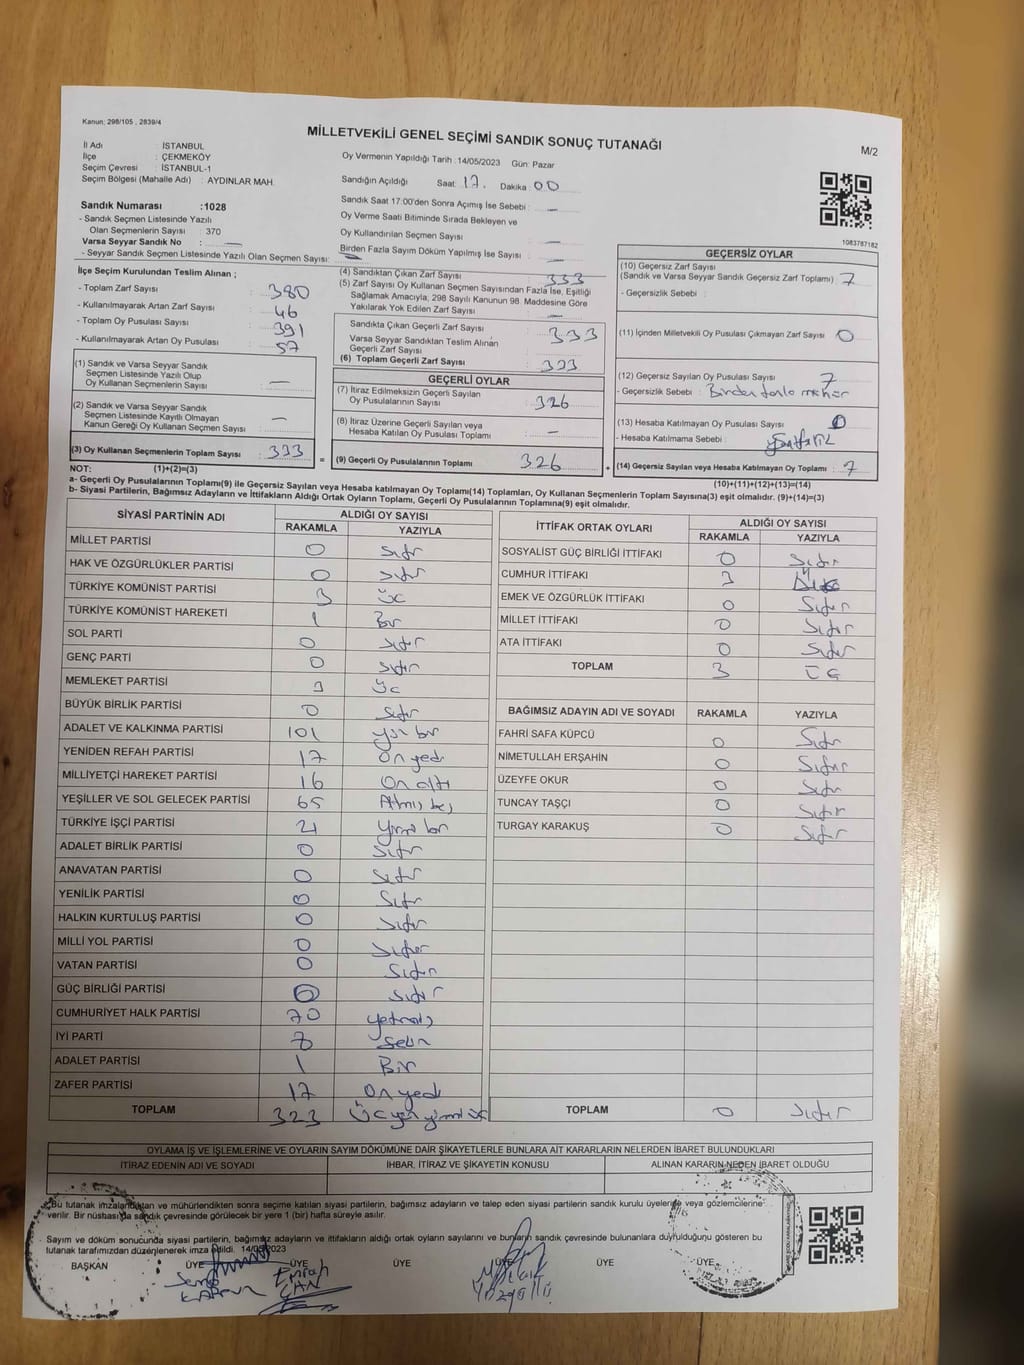 Kanun; 298/105 , 2839/4
MİLLETVEKİLİ GENEL SEÇİMİ SANDIK SONUÇ TUTANAĞI
M/2
İl Adı : İSTANBUL
İlçe : ÇEKMEKÖY
Seçim Çevresi : İSTANBUL-1
Seçim Bölgesi (Mahalle Adı) : AYDINLAR MAH.
Oy Vermenin Yapıldığı Tarih :14/05/2023 Gün: Pazar
Sandığın Açıldığı Saat: 17. Dakika: 00
Sandık Saat 17:00'den Sonra Açımış İse Sebebi : —
Oy Verme Saati Bitiminde Sırada Bekleyen ve
Oy Kullandırılan Seçmen Sayısı —
Birden Fazla Sayım Döküm Yapılmış İse Sayısı —
Sandık Numarası :1028
- Sandık Seçmen Listesinde Yazılı
Olan Seçmenlerin Sayısı : 370
Varsa Seyyar Sandık No : —
- Seyyar Sandık Seçmen Listesinde Yazılı Olan Seçmen Sayısı: —
1083787182
İlçe Seçim Kurulundan Teslim Alınan ;
- Toplam Zarf Sayısı : 380
- Kullanılmayarak Artan Zarf Sayısı : 46
- Toplam Oy Pusulası Sayısı : 391
- Kullanılmayarak Artan Oy Pusulası : 57
(1) Sandık ve Varsa Seyyar Sandık
Seçmen Listesinde Yazılı Olup
Oy Kullanan Seçmenlerin Sayısı : —
(2) Sandık ve Varsa Seyyar Sandık
Seçmen Listesinde Kayıtlı Olmayan
Kanun Gereği Oy Kullanan Seçmen Sayısı : —
(3) Oy Kullanan Seçmenlerin Toplam Sayısı : 333
(4) Sandıktan Çıkan Zarf Sayısı : 333
(5) Zarf Sayısı Oy Kullanan Seçmen Sayısından Fazla İse, Eşitliği
Sağlamak Amacıyla; 298 Sayılı Kanunun 98. Maddesine Göre
Yakılarak Yok Edilen Zarf Sayısı : —
Sandıkta Çıkan Geçerli Zarf Sayısı : 333
Varsa Seyyar Sandıktan Teslim Alınan
Geçerli Zarf Sayısı
(6) Toplam Geçerli Zarf Sayısı : 333
GEÇERLİ OYLAR
(7) İtiraz Edilmeksizin Geçerli Sayılan
Oy Pusulalarının Sayısı : 326
(8) İtiraz Üzerine Geçerli Sayılan veya
Hesaba Katılan Oy Pusulası Toplamı : —
= (9) Geçerli Oy Pusulalarının Toplamı 326
GEÇERSİZ OYLAR
(10) Geçersiz Zarf Sayısı
(Sandık ve Varsa Seyyar Sandık Geçersiz Zarf Toplamı) : 7
- Geçersizlik Sebebi :
(11) İçinden Milletvekili Oy Pusulası Çıkmayan Zarf Sayısı : 0
(12) Geçersiz Sayılan Oy Pusulası Sayısı : 7
- Geçersizlik Sebebi : Birden fazla mühür
(13) Hesaba Katılmayan Oy Pusulası Sayısı : 0
- Hesaba Katılmama Sebebi :
+ (14) Geçersiz Sayılan veya Hesaba Katılmayan Oy Toplamı : 7
NOT: (1)+(2)=(3) (10)+(11)+(12)+(13)=(14)
a- Geçerli Oy Pusulalarının Toplamı(9) ile Geçersiz Sayılan veya Hesaba katılmayan Oy Toplamı(14) Toplamları, Oy Kullanan Seçmenlerin Toplam Sayısına(3) eşit olmalıdır. (9)+(14)=(3)
b- Siyasi Partilerin, Bağımsız Adayların ve İttifakların Aldığı Ortak Oyların Toplamı, Geçerli Oy Pusulalarının Toplamına(9) eşit olmalıdır.
SİYASİ PARTİNİN ADI ALDIĞI OY SAYISI
RAKAMLA YAZIYLA
MİLLET PARTİSİ 0 sıfır
HAK VE ÖZGÜRLÜKLER PARTİSİ 0 sıfır
TÜRKİYE KOMÜNİST PARTİSİ 3 üç
TÜRKİYE KOMÜNİST HAREKETİ 1 Bir
SOL PARTİ 0 sıfır
GENÇ PARTİ 0 sıfır
MEMLEKET PARTİSİ 3 üç
BÜYÜK BİRLİK PARTİSİ 0 sıfır
ADALET VE KALKINMA PARTİSİ 101 yüz bir
YENİDEN REFAH PARTİSİ 17 On yedi
MİLLİYETÇİ HAREKET PARTİSİ 16 On altı
YEŞİLLER VE SOL GELECEK PARTİSİ 65 Atmış beş
TÜRKİYE İŞÇİ PARTİSİ 21 Yirmi bir
ADALET BİRLİK PARTİSİ 0 sıfır
ANAVATAN PARTİSİ 0 sıfır
YENİLİK PARTİSİ 0 sıfır
HALKIN KURTULUŞ PARTİSİ 0 sıfır
MİLLİ YOL PARTİSİ 0 sıfır
VATAN PARTİSİ 0 sıfır
GÜÇ BİRLİĞİ PARTİSİ 0 sıfır
CUMHURİYET HALK PARTİSİ 70 yetmiş
İYİ PARTİ
ADALET PARTİSİ 1 Bir
ZAFER PARTİSİ 17 On yedi
TOPLAM 323 Üç yüz yirmi üç
İTTİFAK ORTAK OYLARI ALDIĞI OY SAYISI
RAKAMLA YAZIYLA
SOSYALİST GÜÇ BİRLİĞİ İTTİFAKI 0 Sıfır
CUMHUR İTTİFAKI 3
EMEK VE ÖZGÜRLÜK İTTİFAKI 0 Sıfır
MİLLET İTTİFAKI 0 Sıfır
ATA İTTİFAKI 0 Sıfır
TOPLAM 3 ÜÇ
BAĞIMSIZ ADAYIN ADI VE SOYADI RAKAMLA YAZIYLA
FAHRİ SAFA KÜPCÜ 0 Sıfır
NİMETULLAH ERŞAHİN 0 Sıfır
ÜZEYFE OKUR 0 Sıfır
TUNCAY TAŞÇI 0 Sıfır
TURGAY KARAKUŞ 0 Sıfır
TOPLAM 0 Sıfır
OYLAMA İŞ VE İŞLEMLERİNE VE OYLARIN SAYIM DÖKÜMÜNE DAİR ŞİKAYETLERLE BUNLARA AİT KARARLARIN NELERDEN İBARET BULUNDUKLARI
İTİRAZ EDENİN ADI VE SOYADI İHBAR, İTİRAZ VE ŞİKAYETİN KONUSU ALINAN KARARIN NEDEN İBARET OLDUĞU
Bu tutanak imzalandıktan ve mühürlendikten sonra seçime katılan siyasi partilerin, bağımsız adayların ve talep eden siyasi partilerin sandık kurulu üyelerine veya gözlemcilerine
verilir. Bir nüshası da sandık çevresinde görülecek bir yere 1 (bir) hafta süreyle asılır.
Sayım ve döküm sonucunda siyasi partilerin, bağımsız adayların ve ittifakların aldığı ortak oyların sayılarını ve bunların sandık çevresinde bulunanlara duyrulduğunu gösteren bu
tutanak tarafımızdan düzenlenerek imza edildi. 14/05/2023
BAŞKAN ÜYE ÜYE ÜYE ÜYE ÜYE ÜYE
Emrah
ÇAN